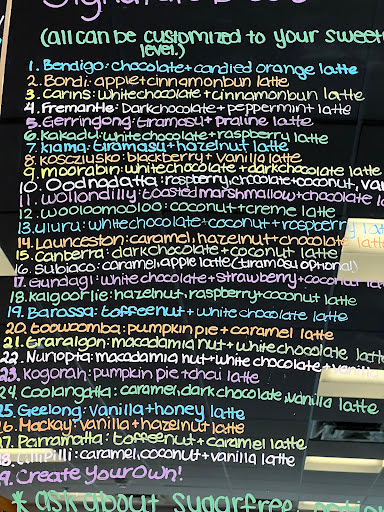 Signature
(all can be customized to your sweet
level.)
1. Bendigo: chocolate + candied orange latte
2. Bondi: apple + cinnamonbun latte
3. Carins: white chocolate + cinnamonbun latte
4. Fremantle: Dark chocolate + peppermint latte
5. Gerringong: tiramasu + praline latte
6. Kakadu: white chocolate + raspberry latte
7. Kiama: tiramasu + hazelnut latte
8. Kosczíusko: blackberry + vanilla latte
9. Moorabin: white chocolate + dark chocolate latte
10. Oodnadatta: raspberry, chocolate + coconut, va
11. Wollondilly: toasted marshmallow + chocolate l
12. Wooloomooloo: coconut + creme latte
13. Uluru: white chocolate + coconut + raspberry lat
14. Launceston: caramel, hazelnut + chocolate latte
15. Canberra: dark chocolate + coconut latte
16. Subiaco: caramel, apple latte (tiramasu optional)
17. Gundagi: white chocolate + strawberry + coconut la
18. Kalgoorlie: hazelnut, raspberry + coconut latte
19. Barossa: toffeenut + white chocolate latte
20. Toowoomba: pumpkin pie + caramel latte
21. Traralgon: macadamia nut + white chocolate latte
22. Nuriopta: macadamia nut + white chocolate + vanilla
23. Kogorah: pumpkin pie + chai latte
24. Coolangatta: caramel, dark chocolate, vanilla latte
25. Geelong: vanilla + honey latte
26. Mackay: vanilla + hazelnut latte
27. Parramatta: toffeenut + caramel latte
28. Lilli Pilli: caramel, coconut + vanilla latte
29. Create Your Own!
* ask about sugar free options